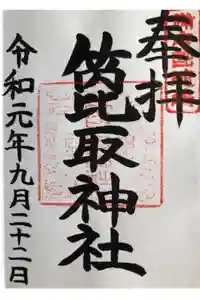 奉拝
箆取神社
令和元年九月二十二日